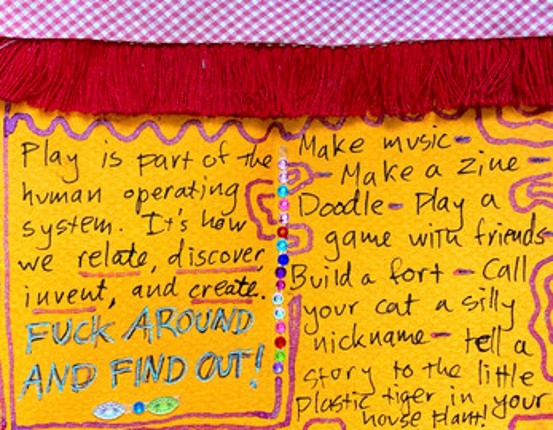 Play is part of the
human operating
system. It's how
we relate, discover,
invent, and create.
FUCK AROUND
AND FIND OUT!
Make music -
- Make a zine -
Doodle - Play a
game with friends -
Build a fort - Call
your cat a silly
nickname - tell a
story to the little
Plastic tiger in your
house plant!